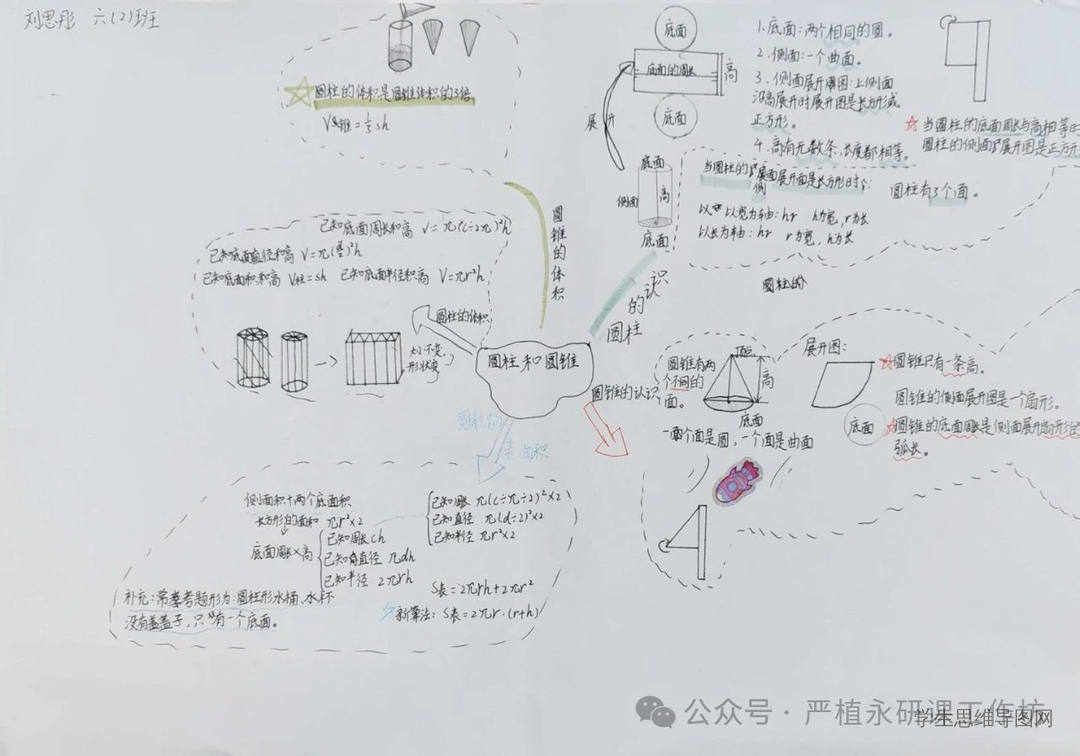 刘思彤 六(2)班
圆柱的体积是圆锥体积的3倍
V圆锥=1/3sh
圆锥的体积
底面
底面的周长
高
底面
展开
1.底面:两个相同的圆。
2.侧面:一个曲面。
3.侧面展开图:上侧面
沿高展开时展开图是长方形或
正方形。
4.高有无数条,长度都相等。
☆当圆柱的底面周长与高相等时
圆柱的侧面展开图是正方形
圆柱有3个面。
底面
侧面
高
底面
当圆柱的展面展开面是长方形时:
以宽为轴:hr h为宽,r为长
以长为轴:hr r为宽,h为长
圆柱的认识
圆柱的
已知底面周长和高 V=π(c÷2π)²h
已知底面直径和高 V=π(d/2)²h
已知底面积和高 V柱=sh 已知底面半径和高 V=πr²h
圆柱的体积
大小不变,
形状变
圆柱和圆锥
圆锥的认识
圆锥有两
个不同的
面。
顶点
高
底面
一个面是圆,一个面是曲面
展开图:
底面
☆圆锥只有一条高。
圆锥的侧面展开图是一个扇形。
☆圆锥的底面周长是侧面展开扇形的
弧长。
圆柱的
表面积
侧面积+两个底面积
长方形的面积 πr²×2
底面周长×高
已知周长ch
已知直径 πdh
已知半径 2πrh
已知周长 π(c÷π÷2)²×2
已知直径 π(d÷2)²×2
已知半径 πr²×2
S表=2πrh+2πr²
☆新算法:S表=2πr·(r+h)
补充:常考题形为:圆柱形水桶、水杯
没有盖子,只有一个底面。
公众号·严植永研课工作坊
学生思维导图网